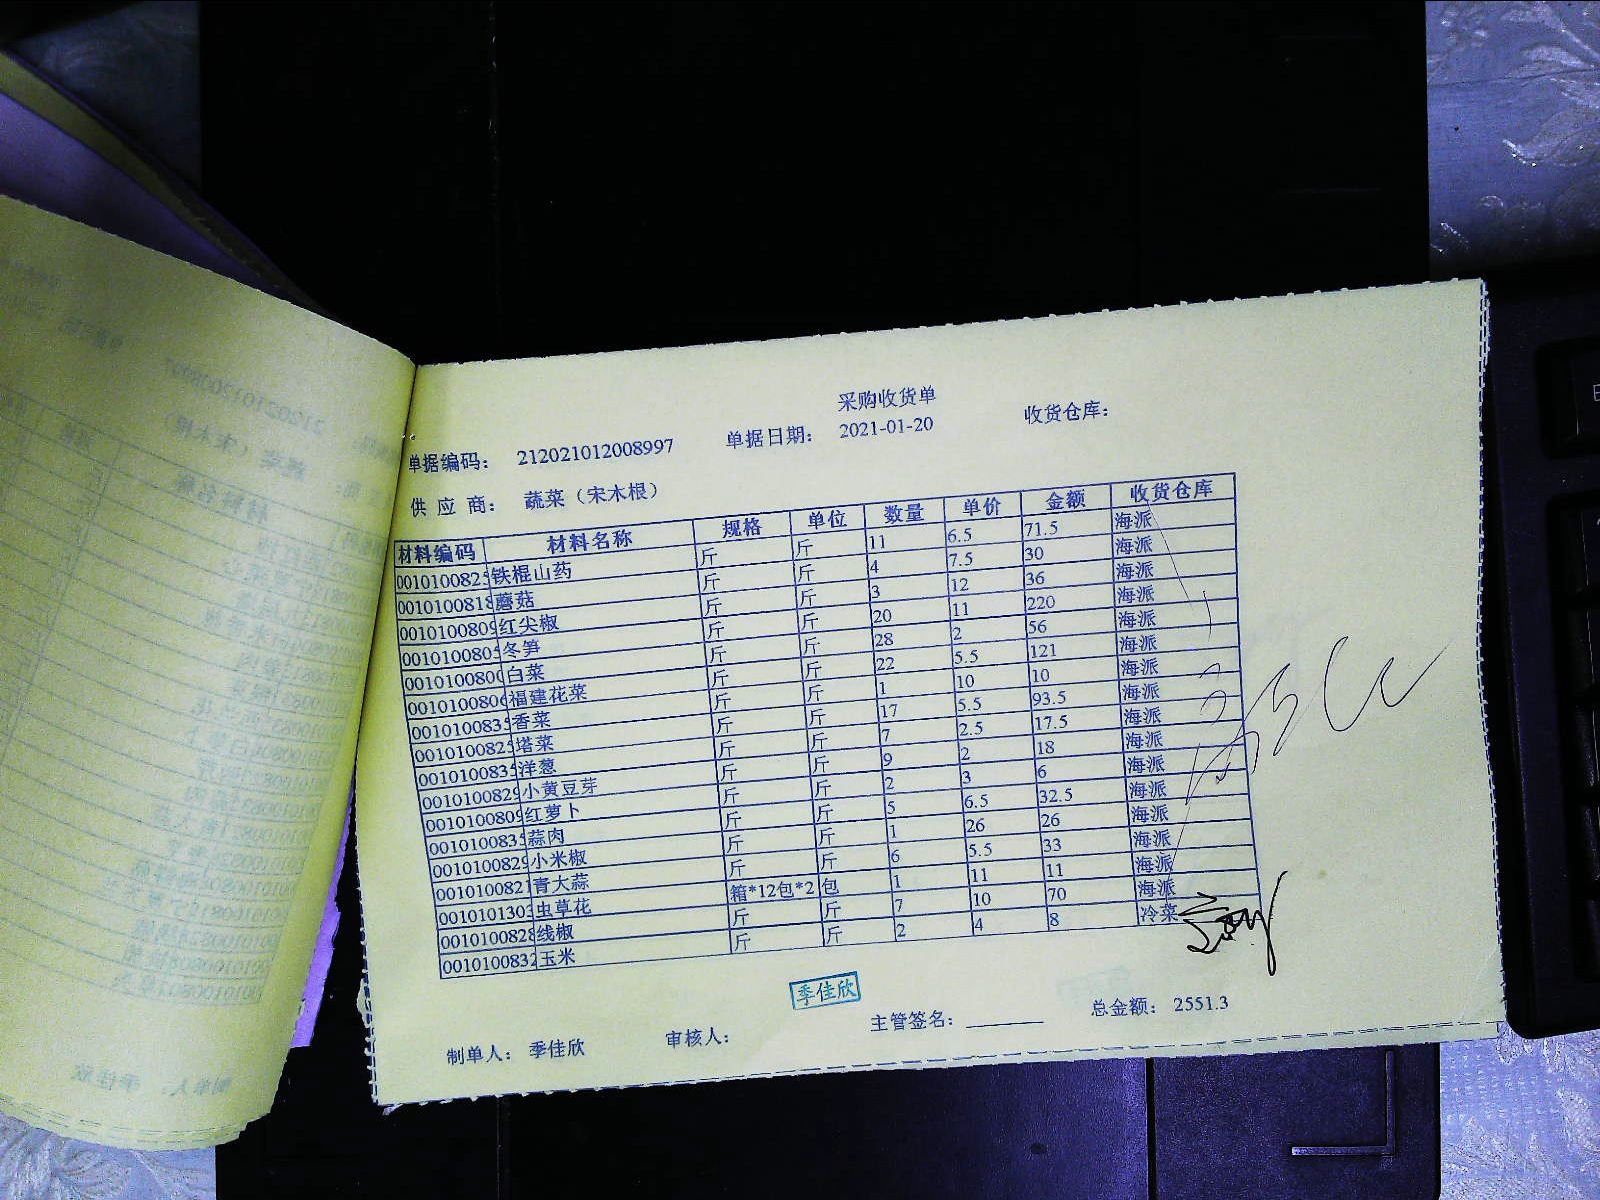 采购收货单
单据编码： 212021012008997 单据日期： 2021-01-20 收货仓库：
供 应 商： 蔬菜（宋木根）
材料编码 材料名称 规格 单位 数量 单价 金额 收货仓库
001010082 铁棍山药 斤 斤 11 6.5 71.5 海派
001010081 蘑菇 斤 斤 4 7.5 30 海派
001010080 红尖椒 斤 斤 3 12 36 海派
001010080 冬笋 斤 斤 20 11 220 海派
001010080 白菜 斤 斤 28 2 56 海派
001010080 福建花菜 斤 斤 22 5.5 121 海派
001010083 香菜 斤 斤 1 10 10 海派
001010082 塔菜 斤 斤 17 5.5 93.5 海派
001010083 洋葱 斤 斤 7 2.5 17.5 海派
001010082 小黄豆芽 斤 斤 9 2 18 海派
001010080 红萝卜 斤 斤 2 3 6 海派
001010083 蒜肉 斤 斤 5 6.5 32.5 海派
001010082 小米椒 斤 斤 1 26 26 海派
001010082 青大蒜 斤 斤 6 5.5 33 海派
001010130 虫草花 箱*12包*2 包 1 11 11 海派
001010082 线椒 斤 斤 7 10 70 海派
001010083 玉米 斤 斤 2 4 8 冷菜
季佳欣
制单人： 季佳欣 审核人： 主管签名： 总金额： 2551.3